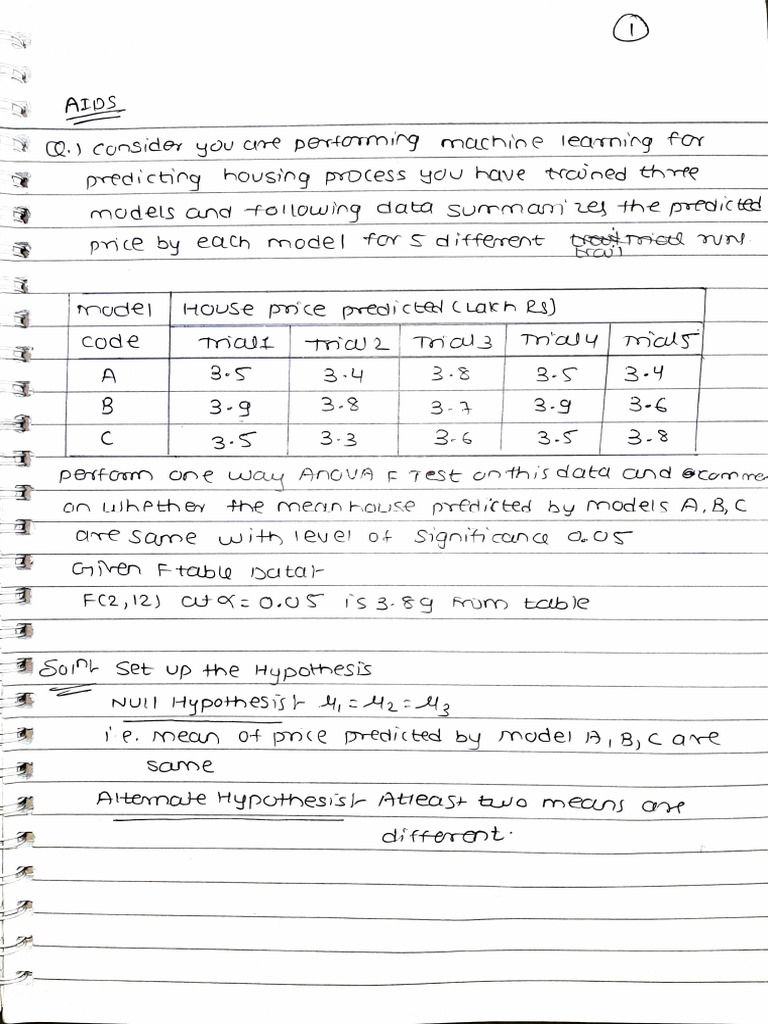 1
AIDS
Q.) consider you are performing machine learning for
predicting housing process you have trained three
models and following data summarizes the predicted
price by each model for 5 different trail runs
model House price predicted (Lakh Rs)
code Trial1 Trial2 Trial3 Trial4 Trial5
A 3.5 3.4 3.8 3.5 3.4
B 3.9 3.8 3.7 3.9 3.6
C 3.5 3.3 3.6 3.5 3.8
perform one way ANOVA F Test on this data and comme
on whether the mean house predicted by models A, B, C
are same with level of significance 0.05
Given F table Data:-
F(2,12) at α = 0.05 is 3.89 from table
Soln:- Set up the Hypothesis
Null Hypothesis:- μ1 = μ2 = μ3
i.e. mean of price predicted by model A, B, C are
same
Alternate Hypothesis:- Atleast two means are
different.